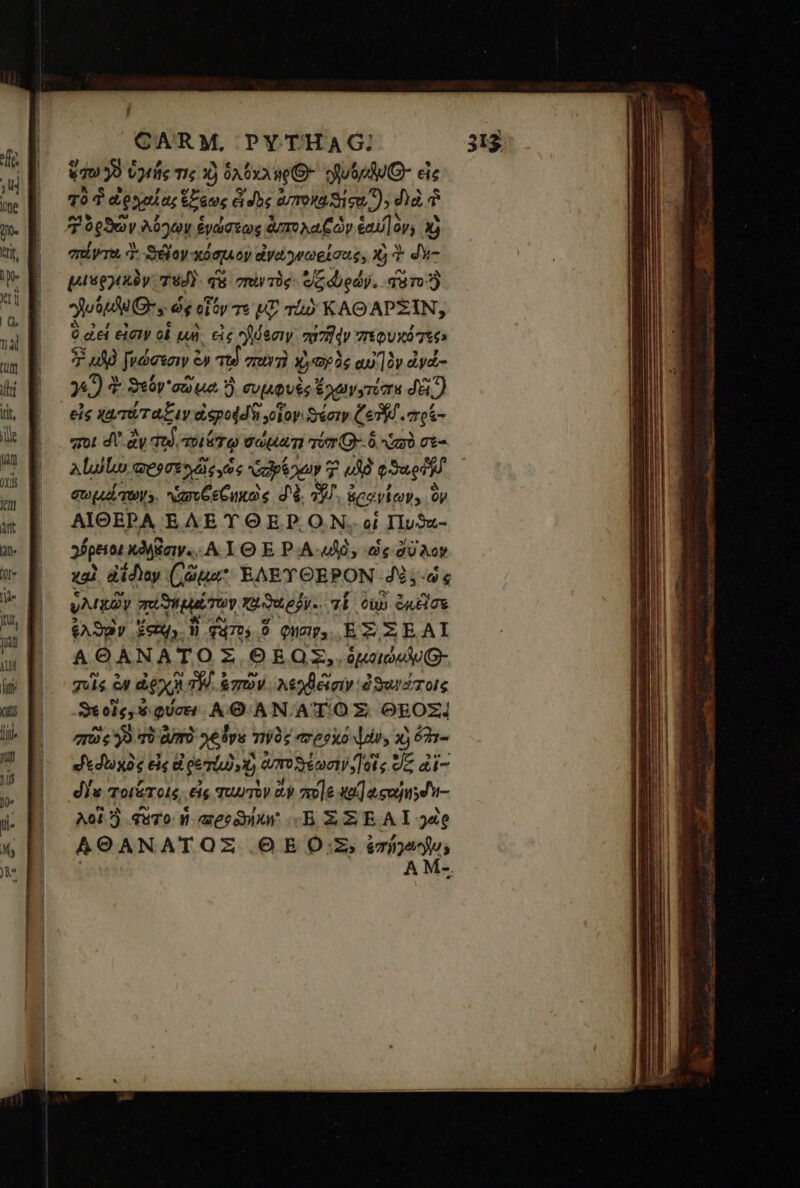 CARM. PYTHAG. 313
ὕτω γὸ ὑγιής τις καὶ ὁλόκληρος γενόμενος εἰς
τὸ τ ἀρχαίας ἕξεως εἶδος ἀποκαθίσταται, διὰ τ
τ ὀρθῶν λόγων ἑνώσεως ἀπολαβὼν ἑαυτὸν, καὶ
πάντα τ θεῖον κόσμον ἀναγνωρίσας, καὶ τ δη-
μιουργικὸν τοῦδε τοῦ παντὸς ἐξευρών. τοῦτο δὲ
γενόμενος, ὡς οἷόν τε μετὰ τὴν ΚΑΘΑΡΣΙΝ,
ὃ ἀεί εἰσιν οἱ μὴ εἰς γένεσιν πίπτειν πεφυκότες,
τ μὲν γνώσεσιν ἐν τῷ παντὶ καὶ πρὸς αὐτὸν ἀνά-
γεται τ θεόν· σῶμα δὲ συμφυὲς ἔχων, τόπου δεῖται
εἰς κατάταξιν ἀστροειδῆ, οἷον θέσιν ζητῶν. πρέ-
ποι δ' ἂν τῷ τοιούτῳ σώματι τόπος ὁ ὑπὸ σε-
λήνην προσεχῶς, ὡς ὑπερέχων τ μὲν φθαρτῶν
σωμάτων, ὑποβεβηκὼς δὲ τῶν οὐρανίων, ὃν
ΑΙΘΕΡΑ ΕΛΕΥΘΕΡΟΝ οἱ Πυθα-
γόρειοι καλοῦσιν. ΑΙΘΕΡΑ μὲν, ὡς ἄϋλον
καὶ ἀΐδιον σῶμα· ΕΛΕΥΘΕΡΟΝ δὲ, ὡς
ὑλικῶν παθημάτων καθαρόν. τί οὖν ἐκεῖσε
ἐλθὼν ἔσται, ἢ τοῦτο, ὅ φησιν, ΕΣΣΕΑΙ
ΑΘΑΝΑΤΟΣ ΘΕΟΣ, ὁμοιούμενος
τοῖς ἐν ἀρχῇ τῶν ἐπῶν λεχθεῖσιν ἀθανάτοις
θεοῖς, οὐ φύσει ΑΘΑΝΑΤΟΣ ΘΕΟΣ;
πῶς γὸ τὸ ἀπὸ χρόνου τινὸς προκόψαν, καὶ ἐπι-
δεδωκὸς εἰς ἀρετὴν, καὶ ἀποθέωσιν, τοῖς ἐξ ἀϊ-
δίου τοιούτοις εἰς ταυτὸν ἄν ποτε καταστῇ; δη-
λοῖ δὲ τοῦτο ἡ προσθήκη· ΕΣΣΕΑΙ γὰρ
ΑΘΑΝΑΤΟΣ ΘΕΟΣ, ἐπήγαγεν,
ΑΜ-